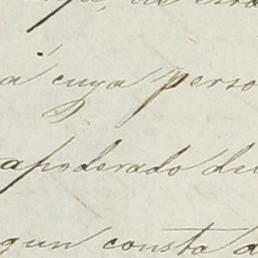 á cuya perso
apoderado de
gun consta d